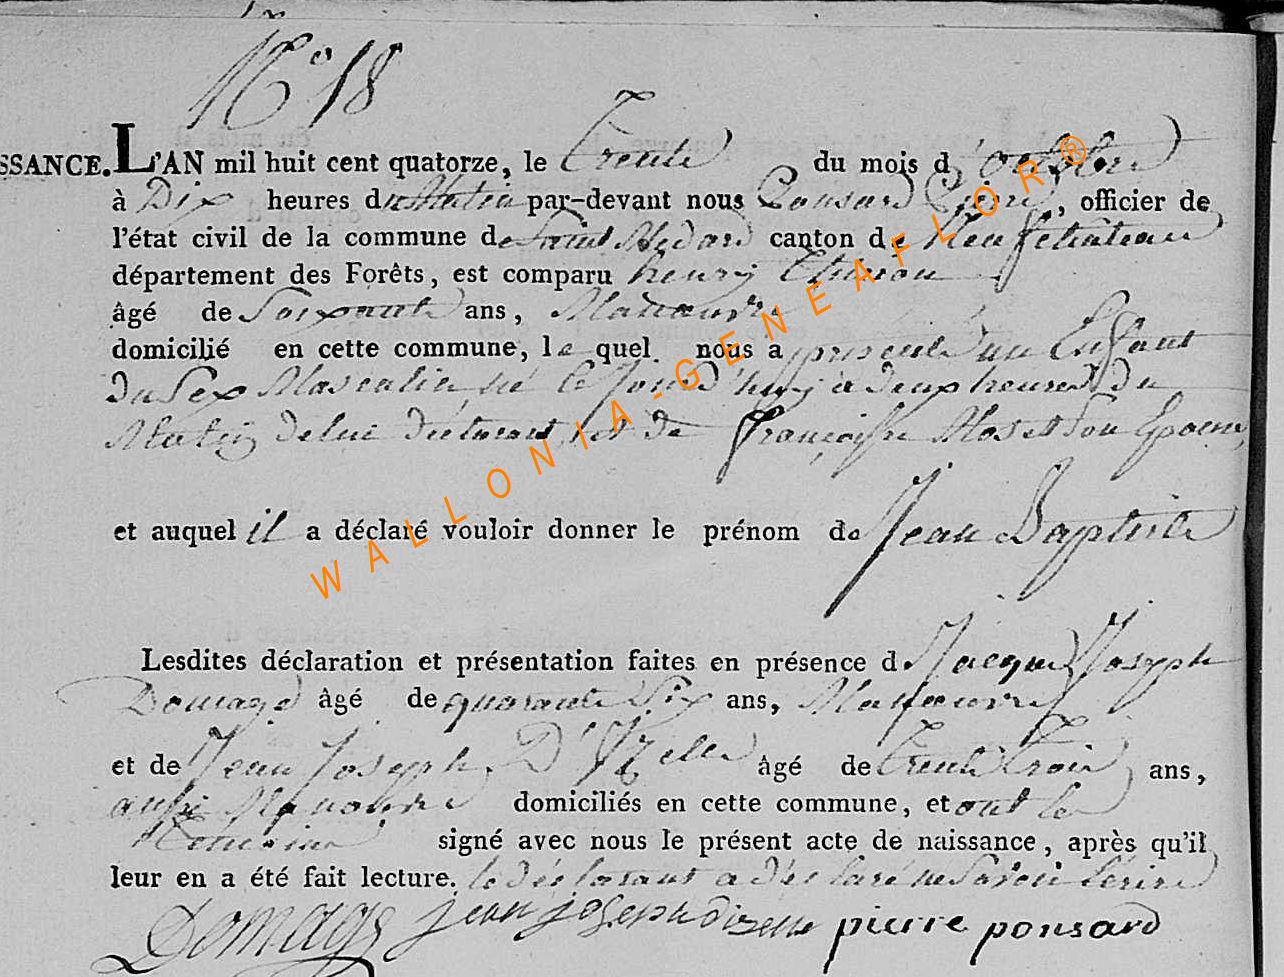 N° 18
SSANCE. L'AN mil huit cent quatorze, le trente du mois d'octobre
à Dix heures du Matin par-devant nous Ponsard Pierre, officier de
l'état civil de la commune de Saint Medard canton de Neufchateau
département des Forêts, est comparu henry
âgé de Soixante ans, Manoeuvre
domicilié en cette commune, le quel nous a presenté un Enfant
du Sex Masculin, né le Jour d'huy à deux heures du
Matin de lui déclarant et de Françoise Son Epouse,
et auquel il a déclaré vouloir donner le prénom de Jean Baptiste
Lesdites déclaration et présentation faites en présence de Jacque Joseph
Domage âgé de quarante Six ans, Manoeuvre
et de Jean Joseph D'Izelle âgé de trente trois ans,
aussi Manoeuvre domiciliés en cette commune, et ont les
temoins signé avec nous le présent acte de naissance, après qu'il
leur en a été fait lecture. le déclarant a déclaré ne Savoir Ecrire
Domage jean joseph dizelle pierre ponsard
WALLONIA-GENEAFLOR®